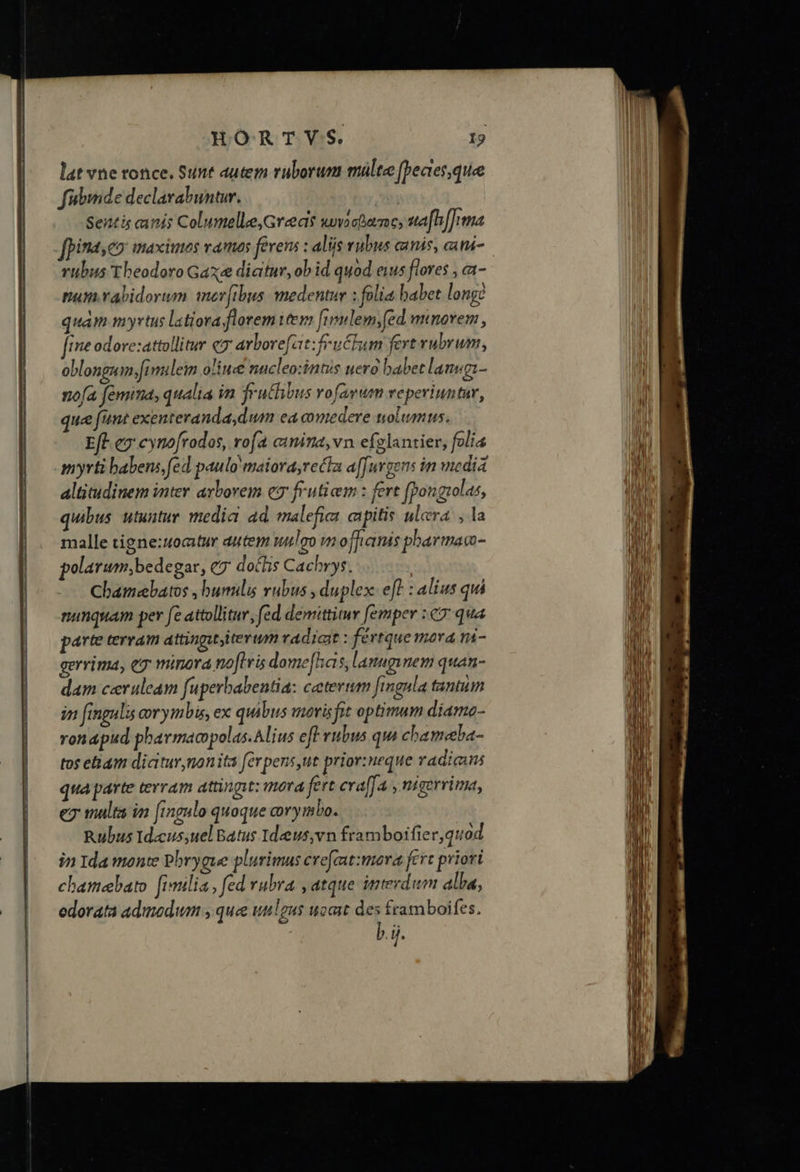 HORTVS. 19
lat vne ronce. Sunt autem ruborum multæ species, quæ
subinde declarabuntur.
Sentis canis Columellæ, Græcis κυνόσβατος, uastissima
spina, & maximos ramos ferens : aliis rubus canis, cani-
rubus Theodoro Gaxæ dicitur, ob id quòd eius flores , ca-
num rabidorum morsibus medentur : folia habet longè
quàm myrtus latiora, florem item similem, sed minorem,
sine odore: attollitur & arborescit: fructum fert rubrum,
oblongum, similem oliuæ nucleo: intus uerò habet lanugi-
nosa semina, qualia in fructibus rosarum reperiuntur,
quæ sunt exenteranda, dum ea comedere uolumus.
Est & cynosrodos, rosa canina, vn esglantier, folia
myrti habens, sed paulò maiora, recta assurgens in mediã
altitudinem inter arborem & fruticem : fert spongiolas,
quibus utuntur medici ad malefica capitis ulcera , la
malle tigne: uocatur autem uulgo in officinis pharmaco-
polarum, bedegar, & doctis Cachrys.
Chamæbatos , humilis rubus , duplex est : alius qui
nunquam per se attollitur, sed demittitur semper : & qua
parte terram attingit, iterum radicat : fértque mora ni-
gerrima, & minora nostris domesticis, lanuginem quan-
dam cæruleam superhabentia: cæterum singula tantùm
in singulis corymbis, ex quibus moris fit optimum diamo-
ron apud pharmacopolas. Alius est rubus qui chamæba-
tos etiam dicitur, non ita serpens, ut prior: neque radicans
qua parte terram attingit: mora fert crassa , nigerrima,
& multa in singulo quoque corymbo.
Rubus Idæus, uel Batus Idæus, vn framboisier, quòd
in Ida monte Phrygiæ plurimus crescat: mora fert priori
chamæbato similia, sed rubra , atque interdum alba,
odorata admodum , quæ uulgus uocat des framboises.
b.ij.